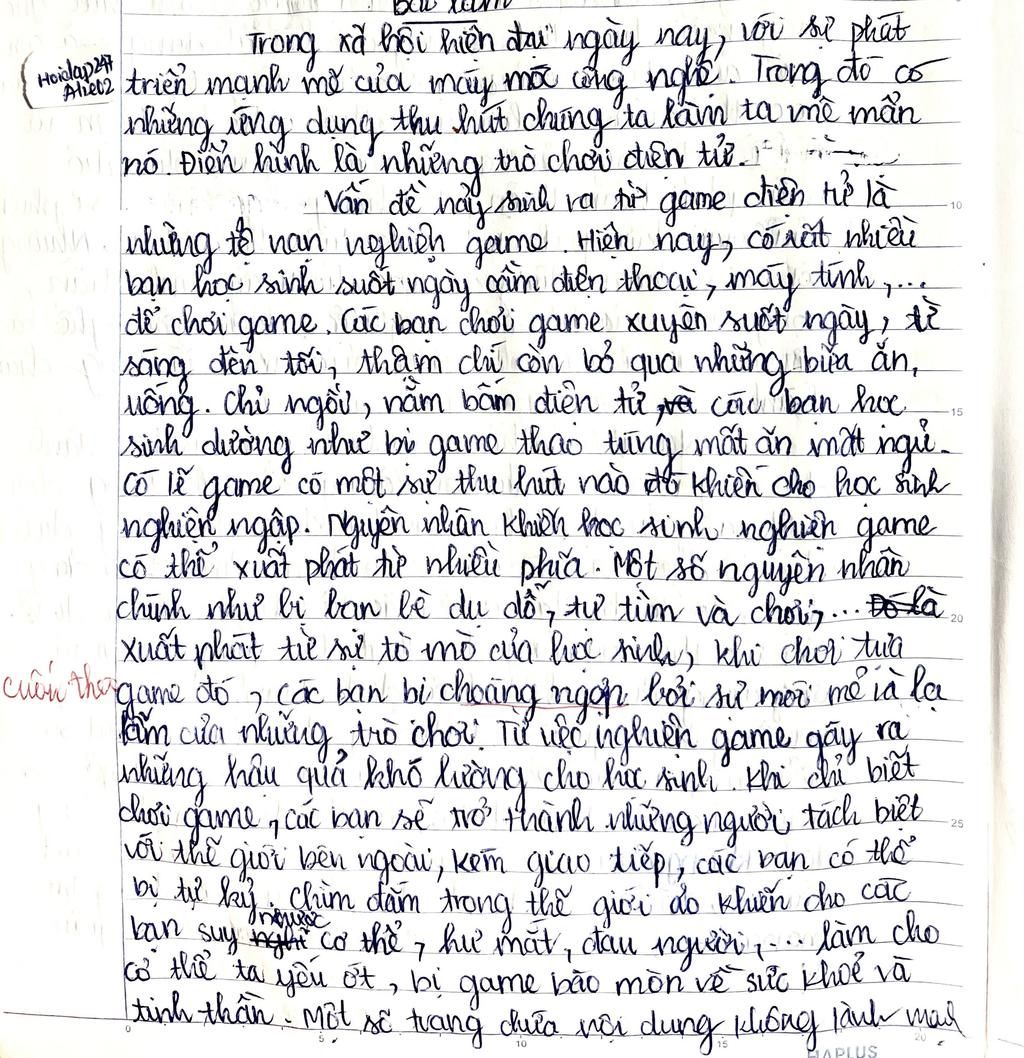 Bài làm
Trong xã hội hiện đại ngày nay, với sự phát
Hoidap247
Alie02
triển mạnh mẽ của máy móc công nghệ. Trong đó có
những ứng dụng thu hút chúng ta làm ta mê mẩn
nó. Điển hình là những trò chơi điện tử.
Vấn đề nảy sinh ra từ game điện tử là
10
những tệ nạn nghiện game. Hiện nay, có rất nhiều
bạn học sinh suốt ngày cầm điện thoại, máy tính,...
để chơi game. Các bạn chơi game xuyên suốt ngày, từ
sáng đến tối, thậm chí còn bỏ qua những bữa ăn,
uống. Chỉ ngồi, nằm bấm điện tử, và các bạn học
15
sinh dường như bị game thao túng mất ăn mất ngủ.
Có lẽ game có một sự thu hút nào đó khiến cho học sinh
nghiện ngập. Nguyên nhân khiến học sinh nghiện game
có thể xuất phát từ nhiều phía. Một số nguyên nhân
chính như bị bạn bè dụ dỗ, tự tìm và chơi,... Đó là
20
xuất phát từ sự tò mò của học sinh, khi chơi tựa
game đó, các bạn bị choáng ngợp bởi sự mới mẻ và lạ
lẫm của những trò chơi. Từ việc nghiện game gây ra
những hậu quả khó lường cho học sinh. Khi chỉ biết
chơi game, các bạn sẽ trở thành những người tách biệt
25
với thế giới bên ngoài, kém giao tiếp, các bạn có thể
bị tự kỷ. Chìm đắm trong thế giới ảo khiến cho các
bạn suy nhược cơ thể, hư mắt, đau người,... làm cho
cơ thể ta yếu ớt, bị game bào mòn về sức khoẻ và
tinh thần. Một số trang chứa nội dung không lành mạn
0 5 10 15 20
HAPLUS